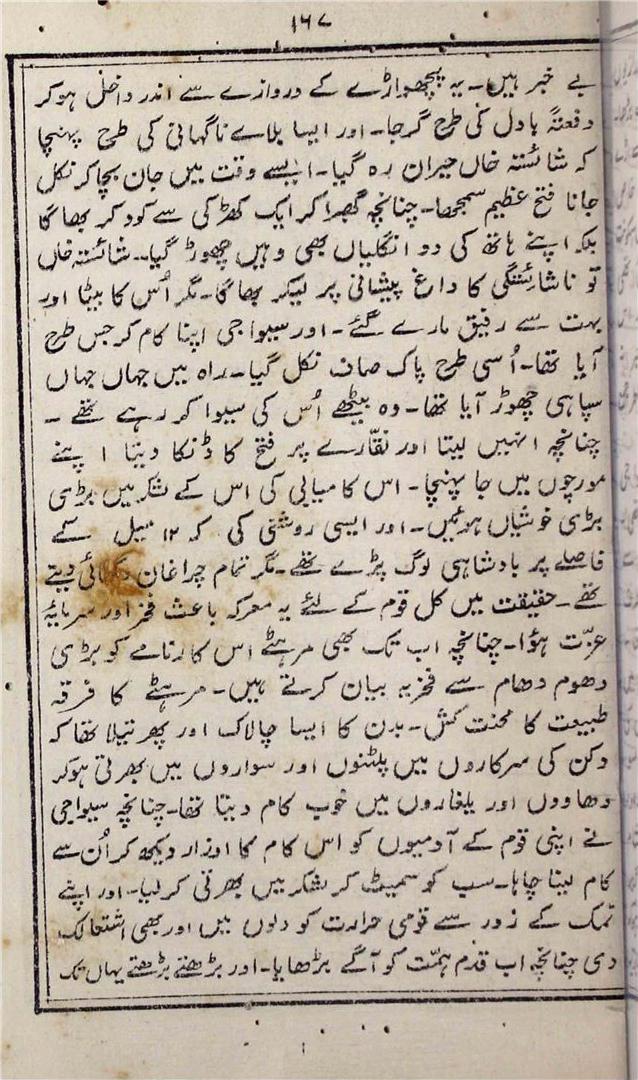 ۱۶۷
بے خبر ہیں۔ یہ پچھواڑے کے دروازے سے اندر داخل ہوکر
دفعتہً بادل کی طرح گرجا۔ اور ایسا بلاے ناگہانی کی طرح پہنچا
کہ شائستہ خاں حیران رہ گیا۔ ایسے وقت میں جان بچا کر نکل
جانا فتح عظیم سمجھا۔ چنانچہ گھبرا کر ایک کھڑکی سے کود کر بھاگا
بلکہ اپنے ہاتھ کی دو انگلیاں بھی وہیں چھوڑ گیا۔ شائستہ خاں
تو ناشائستگی کا داغ پیشانی پر لیکر بھاگا۔ مگر اُس کا بیٹا اور
بہت سے رفیق مارے گئے۔ اور سیوا جی اپنا کام کر جس طرح
آیا تھا۔ اُسی طرح پاک صاف نکل گیا۔ راہ میں جہاں جہاں
سپاہی چھوڑ آیا تھا۔ وہ بیٹھے اُس کی سیوا کر رہے تھے۔
چنانچہ انہیں لیتا اور نقّارے پر فتح کا ڈنکا دیتا اپنے
مورچوں میں جا پہنچا۔ اس کامیابی کی اس کے لشکر میں بڑی
بڑی خوشیاں ہوئیں۔ اور ایسی روشنی کی کہ ۱۲ میل کے
فاصلے پر بادشاہی لوگ پڑے تھے۔ مگر تمام چراغان دکھائی دیتے
تھے۔ حقیقت میں کل قوم کے لئے یہ معرکہ باعث فخر اور سرمایۂ
عزّت ہؤا۔ چنانچہ اب تک بھی مرہٹے اس کارنامے کو بڑی
دھوم دھام سے فخریہ بیان کرتے ہیں۔ مرہٹے کا فرقہ
طبیعت کا محنت کش۔ بدن کا ایسا چالاک اور پھرتیلا تھا کہ
دکن کی سرکاروں میں پلٹنوں اور سواروں میں بھرتی ہوکر
دھاووں اور یلغاروں میں خوب کام دیتا تھا۔ چنانچہ سیواجی
نے اپنی قوم کے آدمیوں کو اس کام کا اوزار دیکھ کر اُن سے
کام لینا چاہا۔ سب کو سمیٹ کر لشکر میں بھرتی کر لیا۔ اور اپنے
نمک کے زور سے قومی حرارت کو دلوں میں اور بھی اشتعالک
دی چنانچہ اب قدم ہمّت کو آگے بڑھایا۔ اور بڑھتے بڑھتے یہاں تک